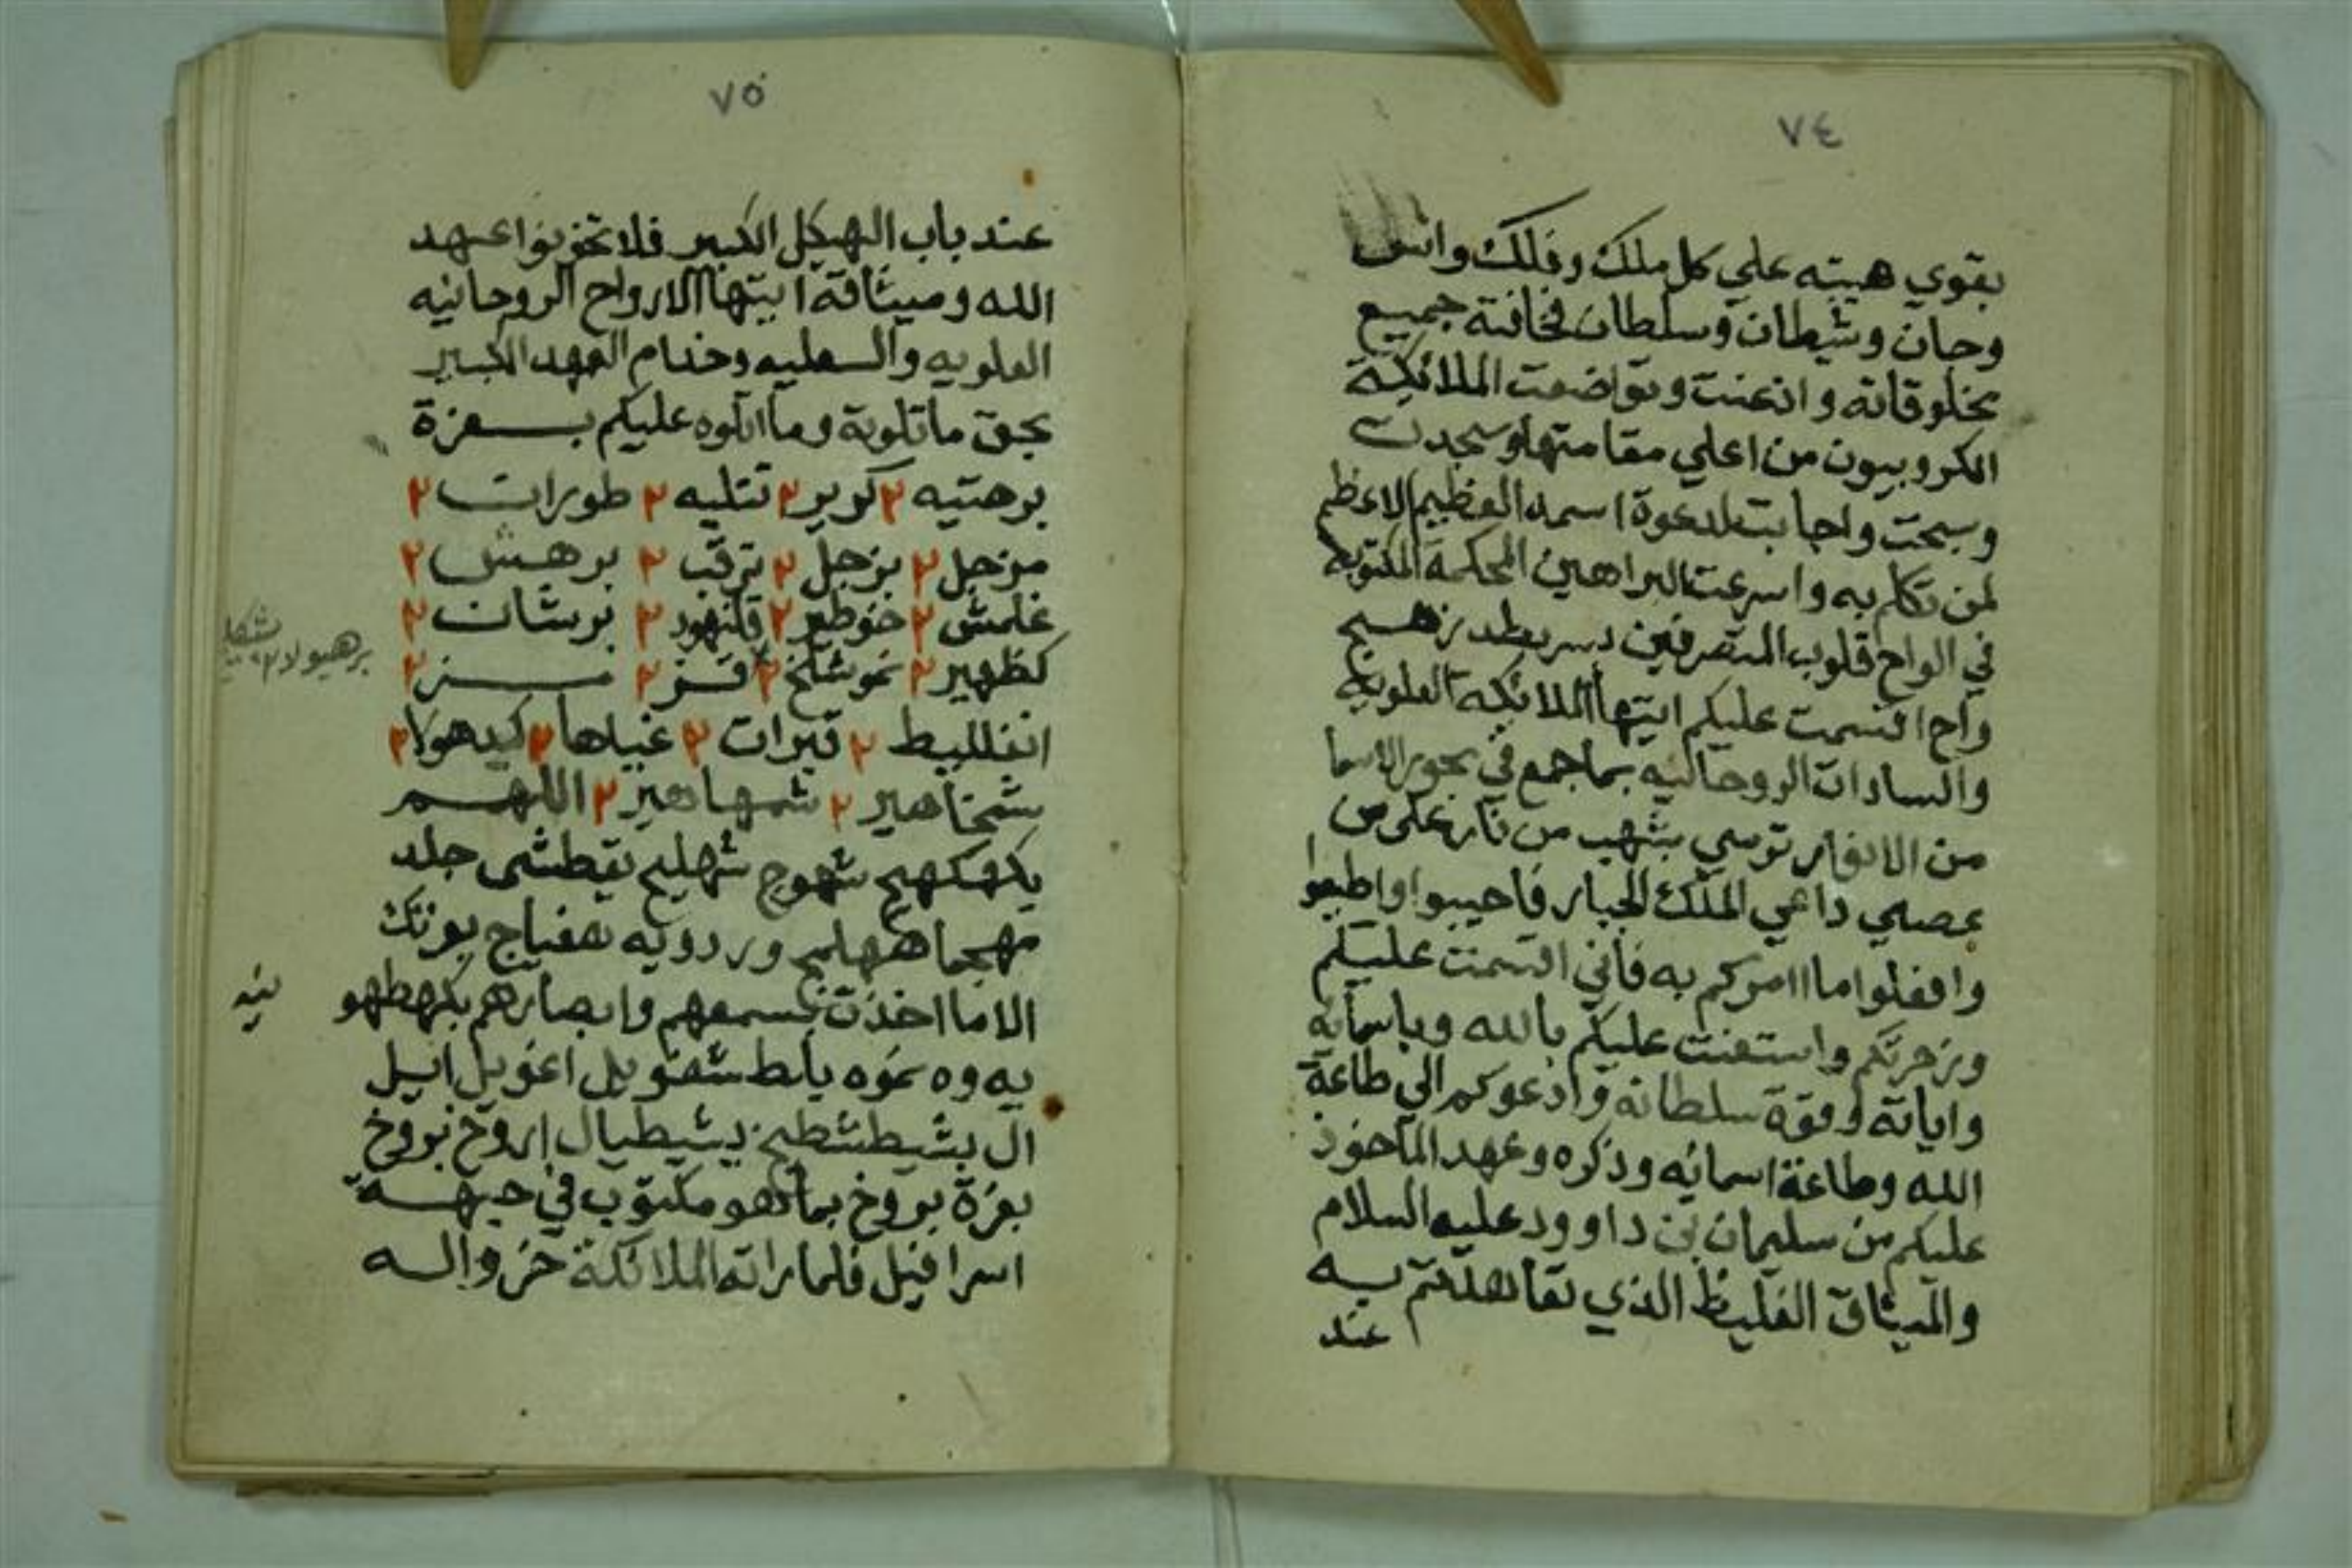 ٧٤
بقوي هيبته علي كل ملك وفلك وانس
وجان وشيطان وسلطان فخافته جميع
مخلوقاته واذعنت وتواضعت الملائكة
الكروبيون من اعلي مقامتها وسجدت
وسبحت واجابت لدعوة اسمه العظيم الاعظم
لمن تكلم به واسرعت البراهين المحكمة المكتوبه
في الواح قلوب المتصرفين بدسر بطد زهج
واح اقسمت عليكم ايتها الملائكه العلويه
والسادات الروحانيه بما جمع في بحور الاسما
من الانوار ترمي بشهب من نار علي من
عصي داعي الملك الجبار فاجيبوا واطيعوا
وافعلوا ما اامركم به فاني اقسمت عليكم
وزجرتكم واستعنت عليكم بالله وباسمائه
واياته وقوة سلطانه وادعوكم الي طاعة
الله وطاعة اسمائه وذكره وعهد الماخوذ
عليكم من سليمان بن داوود عليه السلام
والميثاق الغليظ الذي تعاهدتم به
عند
٧٥
عند باب الهيكل الكبير فلا تخونوا عهد
الله وميثاقه ايتها الارواح الروحانيه
العلويه والسفليه وخدام العهد الكبير
بحق ما تلوته وما اتلوه عليكم بعزة
برهتيه ٢ كرير ٢ تتليه ٢ طوران ٢
مزجل ٢ بزجل ٢ ترقب ٢ برهش ٢
غلمش ٢ خوطير ٢ قلنهود ٢ برشان ٢
كظهير ٢ نموشلخ ٢ قز ٢ مز ٢
برهيولا ٢ بشكيلخ
انغلليط ٢ قبرات ٢ غياها ٢ كيدهولا ٢
شمخاهير ٢ شمهاهير ٢ اللهم
بكهكهيج شهوج شهليج بقطشي جلد
مهجما هلمج وردويه هفياج بعزتك
الا ما اخذت بسمعهم وابصارهم بكهطهو
نيه
يه وه نموه ياط شقويل اغويل ايل
ال بشيطشطيخ بشيطيال اروخ بروخ
بعزة بروخ بما هو مكتوب في جبهة
اسرافيل فلما راته الملائكة خروا له